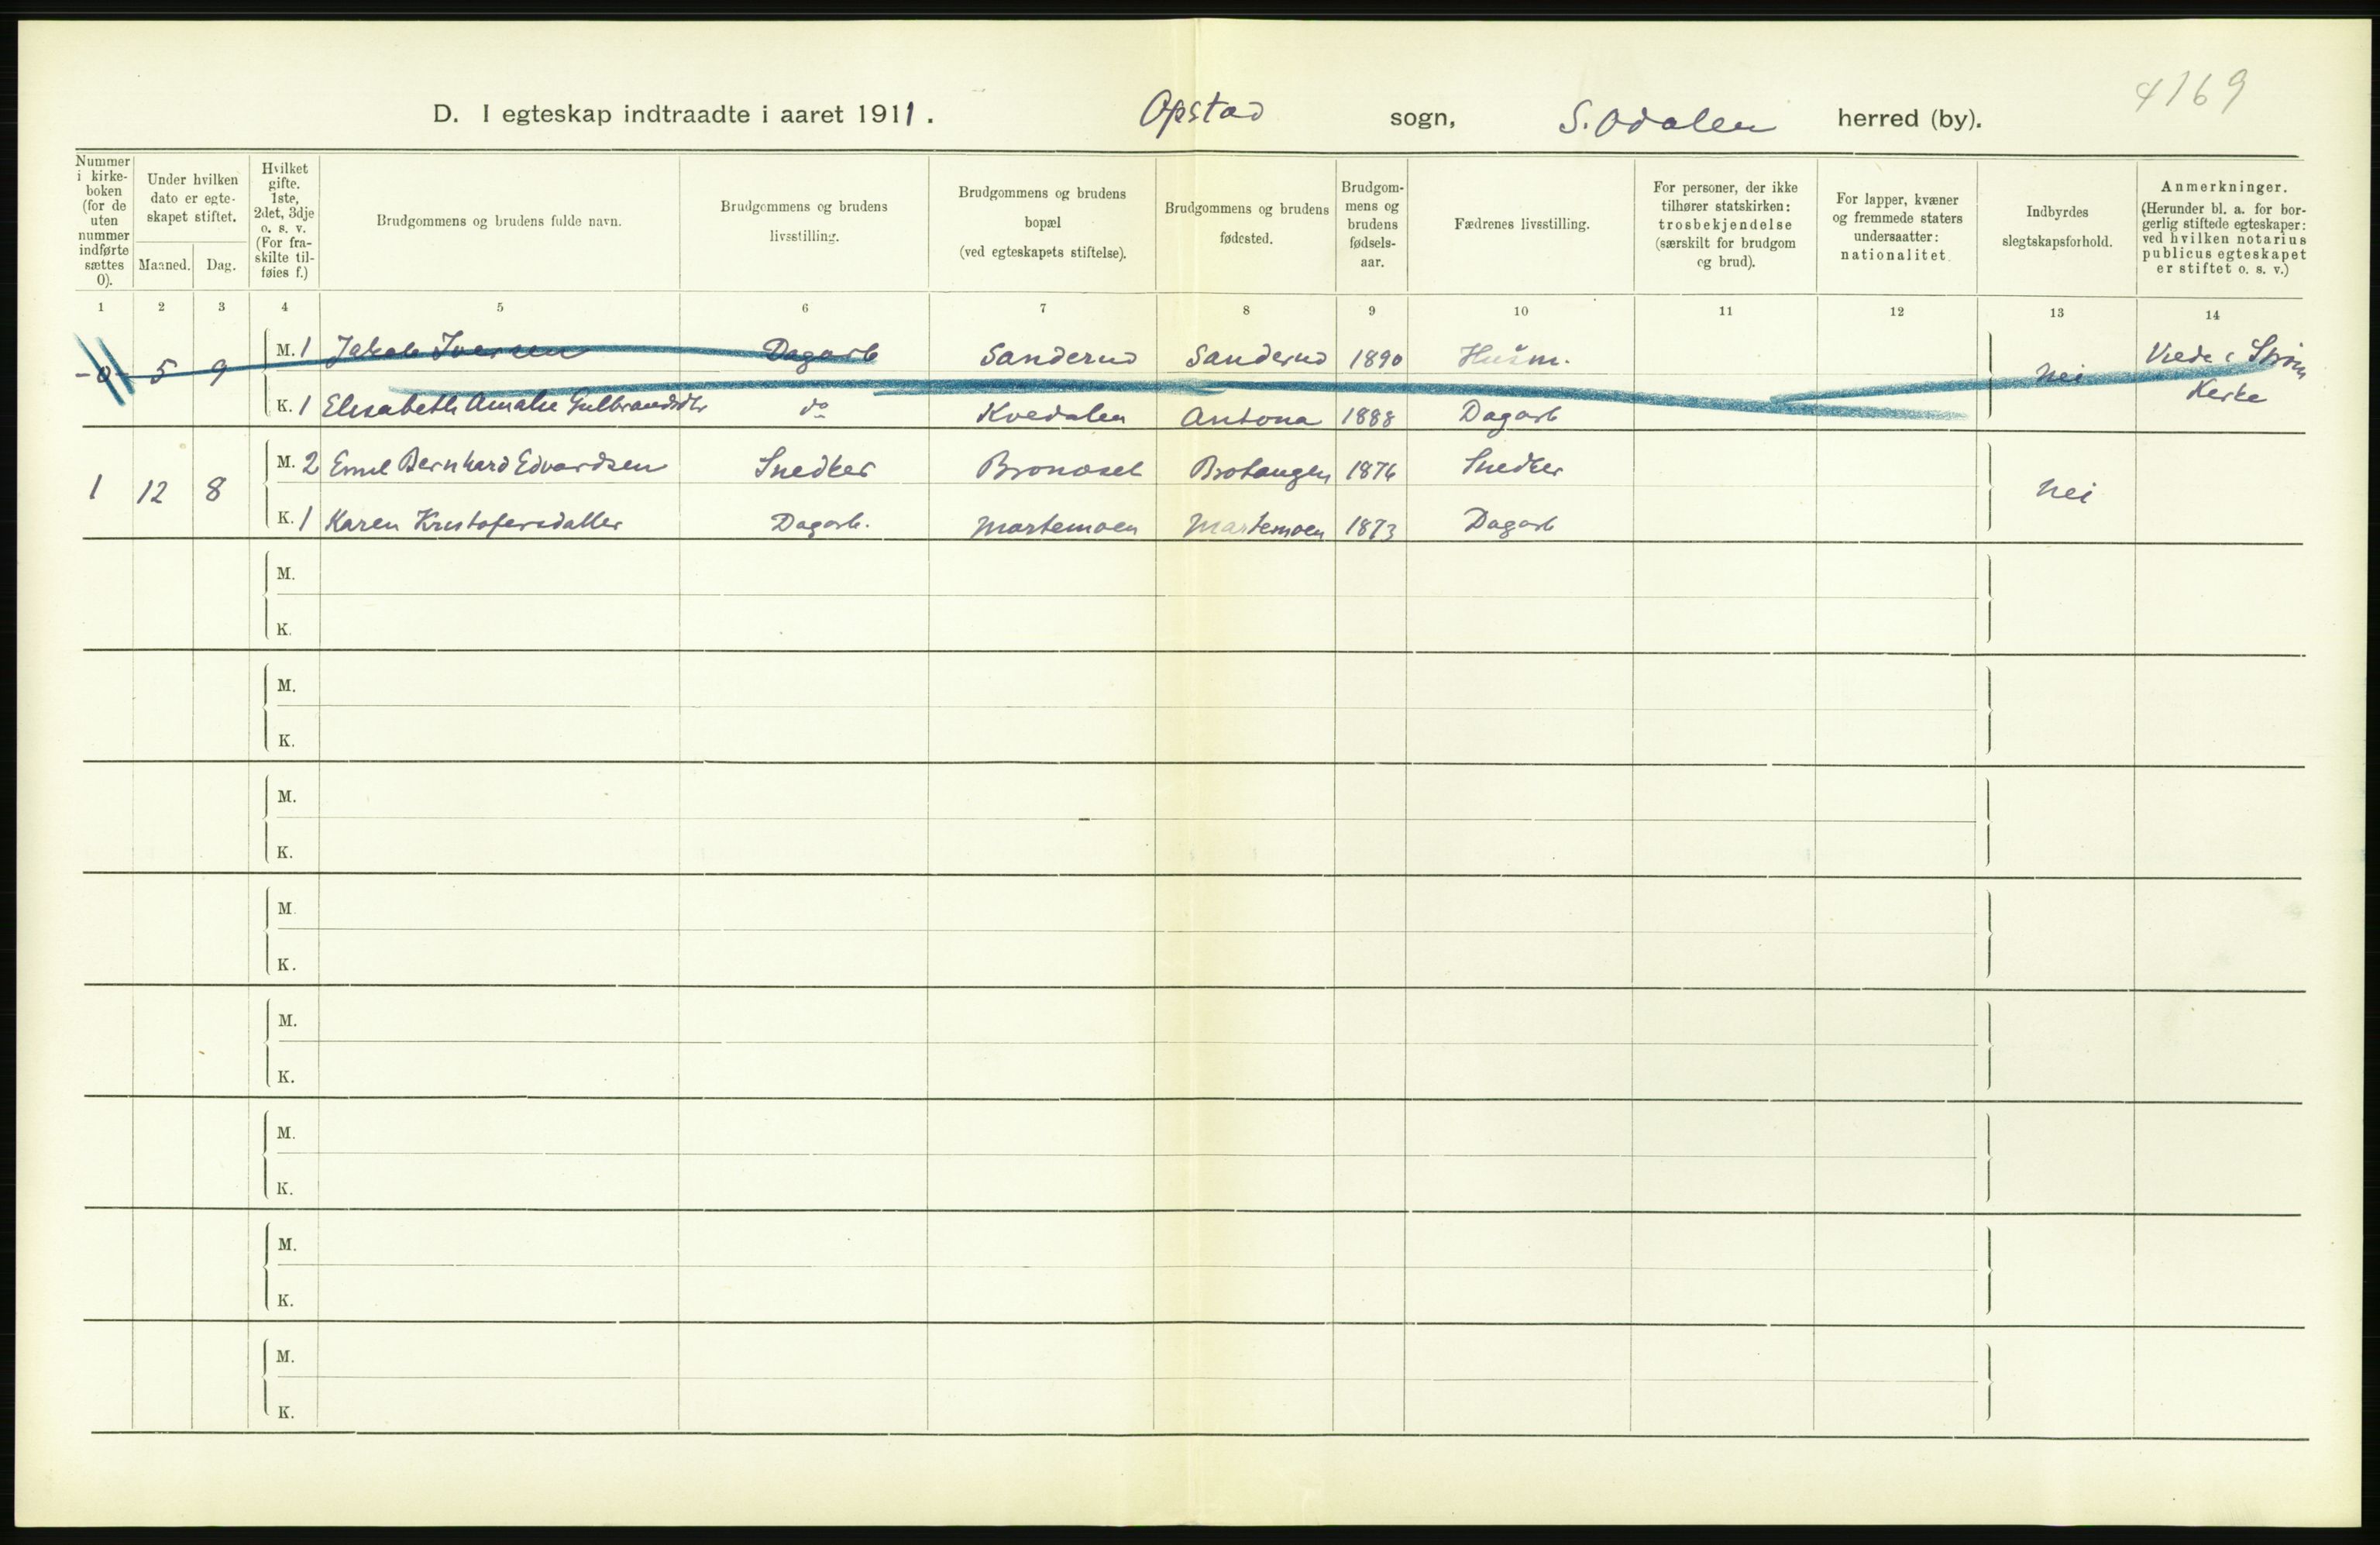 4169
D. I egteskap indtraadte i aaret 1911. Opstad sogn, S. Odalen herred (by).
Nummer i kirke-boken (for de uten nummer indførte sættes 0).
Under hvilken dato er egte-skapet stiftet.
Maaned. Dag.
Hvilket gifte. 1ste, 2det, 3dje o. s. v. (For fra-skilte til-føies f.)
Brudgommens og brudens fulde navn.
Brudgommens og brudens livsstilling.
Brudgommens og brudens bopæl (ved egteskapets stiftelse).
Brudgommens og brudens fødested.
Brudgom-mens og brudens fødsels-aar.
Fædrenes livsstilling.
For personer, der ikke tilhører statskirken: trosbekjendelse (særskilt for brudgom og brud).
For lapper, kvæner og fremmede staters undersaatter: nationalitet.
Indbyrdes slegtskapsforhold.
Anmerkninger. (Herunder bl. a. for bor-gerlig stiftede egteskaper: ved hvilken notarius publicus egteskapet er stiftet o. s. v.)
1 2 3 4 5 6 7 8 9 10 11 12 13 14
-0- 5 9 M. 1 Jakob Iversen Dagarb Sanderud Sanderud 1890 Husm. Nei Viede i Strøm Kirke
K. 1 Elisabeth Amalie Gulbrandsdtr do Kvedalen Antona 1888 Dagarb
1 12 8 M. 2 Emil Bernhard Edvardsen Snedker Bronæset Brotangen 1876 Snedker Nei
K. 1 Karen Kristofersdatter Dagarb. Martemoen Martemoen 1873 Dagarb
M.
K.
M.
K.
M.
K.
M.
K.
M.
K.
M.
K.
M.
K.
M.
K.